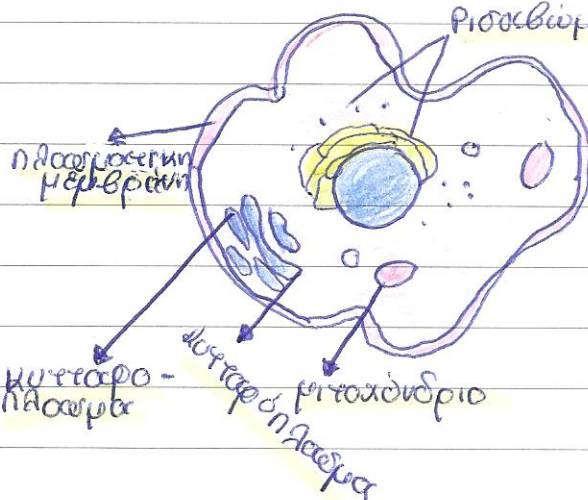 Ριβοσώμ
πλασματικη
μεμβράνη
κυτταρο-
πλασμα
κυτταρόπλασμα
μιτοχόνδριο